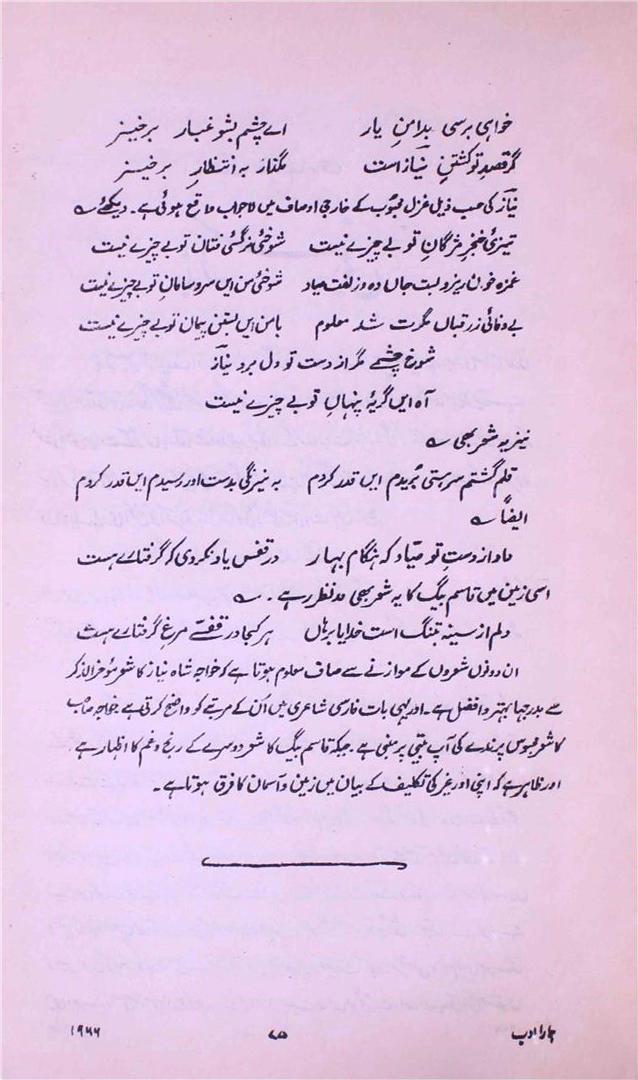 خواہی برسی بدامنِ یار اے چشم بشو غبار برخیز
گر قصدِ تو کشتنِ نیاز است مگذار بہ انتظار برخیز
نیاز کی حسب ذیل غزل محبوب کے خارجی اوصاف میں لاجواب واقع ہوئی ہے۔ دیکھئے ؎
تیزیٔ خنجرِ مژگانِ تو بے چیزے نیست شوخیٔ نرگسِ فتانِ تو بے چیزے نیست
غمزہ خوں ریز و لبت جاں دہ و زلفت صیاد شوخیٔ من ایں سر و سامانِ تو بے چیزے نیست
بے وفائی ز رقیباں مگرت شد معلوم با من ایں بستنِ پیمانِ تو بے چیزے نیست
شوخ چشمے مگر از دست تو دل برد نیاز
آہ ایں گریۂ پنہانِ تو بے چیزے نیست
نیز یہ شعر بھی ؎
قلم گشتم سر ہستی بُریدم ایں قدر کردم بہ نیرنگی بدست اور رسیدم ایں قدر کردم
ایضاً ؎
داد از دستِ تو صیّاد کہ ہنگام بہار در قفس یاد نکردی کہ گرفتارے ہست
اسی زمین میں قاسم بیگ کا یہ شعر بھی مدنظر رہے۔ ؎
دلم از سینہ بتنگ است خدایا برہاں ہر کجا در قفسے مرغِ گرفتارے ہست
ان دونوں شعروں کے موازنے سے صاف معلوم ہوتا ہے کہ خواجہ شاہ نیاز کا شعر مؤخرالذکر
سے بدرجہا بہتر و افضل ہے۔ اور یہی بات فارسی شاعری میں اُن کے مرتبے کو واضح کرتی ہے خواجہ صاحب
کا شعر محبوس پرندے کی آپ بیتی پر مبنی ہے۔ جبکہ قاسم بیگ کا شعر دوسرے کے رنج و غم کا اظہار ہے
اور ظاہر ہے کہ اپنی اور غیر کی تکلیف کے بیان میں زمین و آسمان کا فرق ہوتا ہے۔
ہمارا ادب ۸۵ ۱۹۶۶